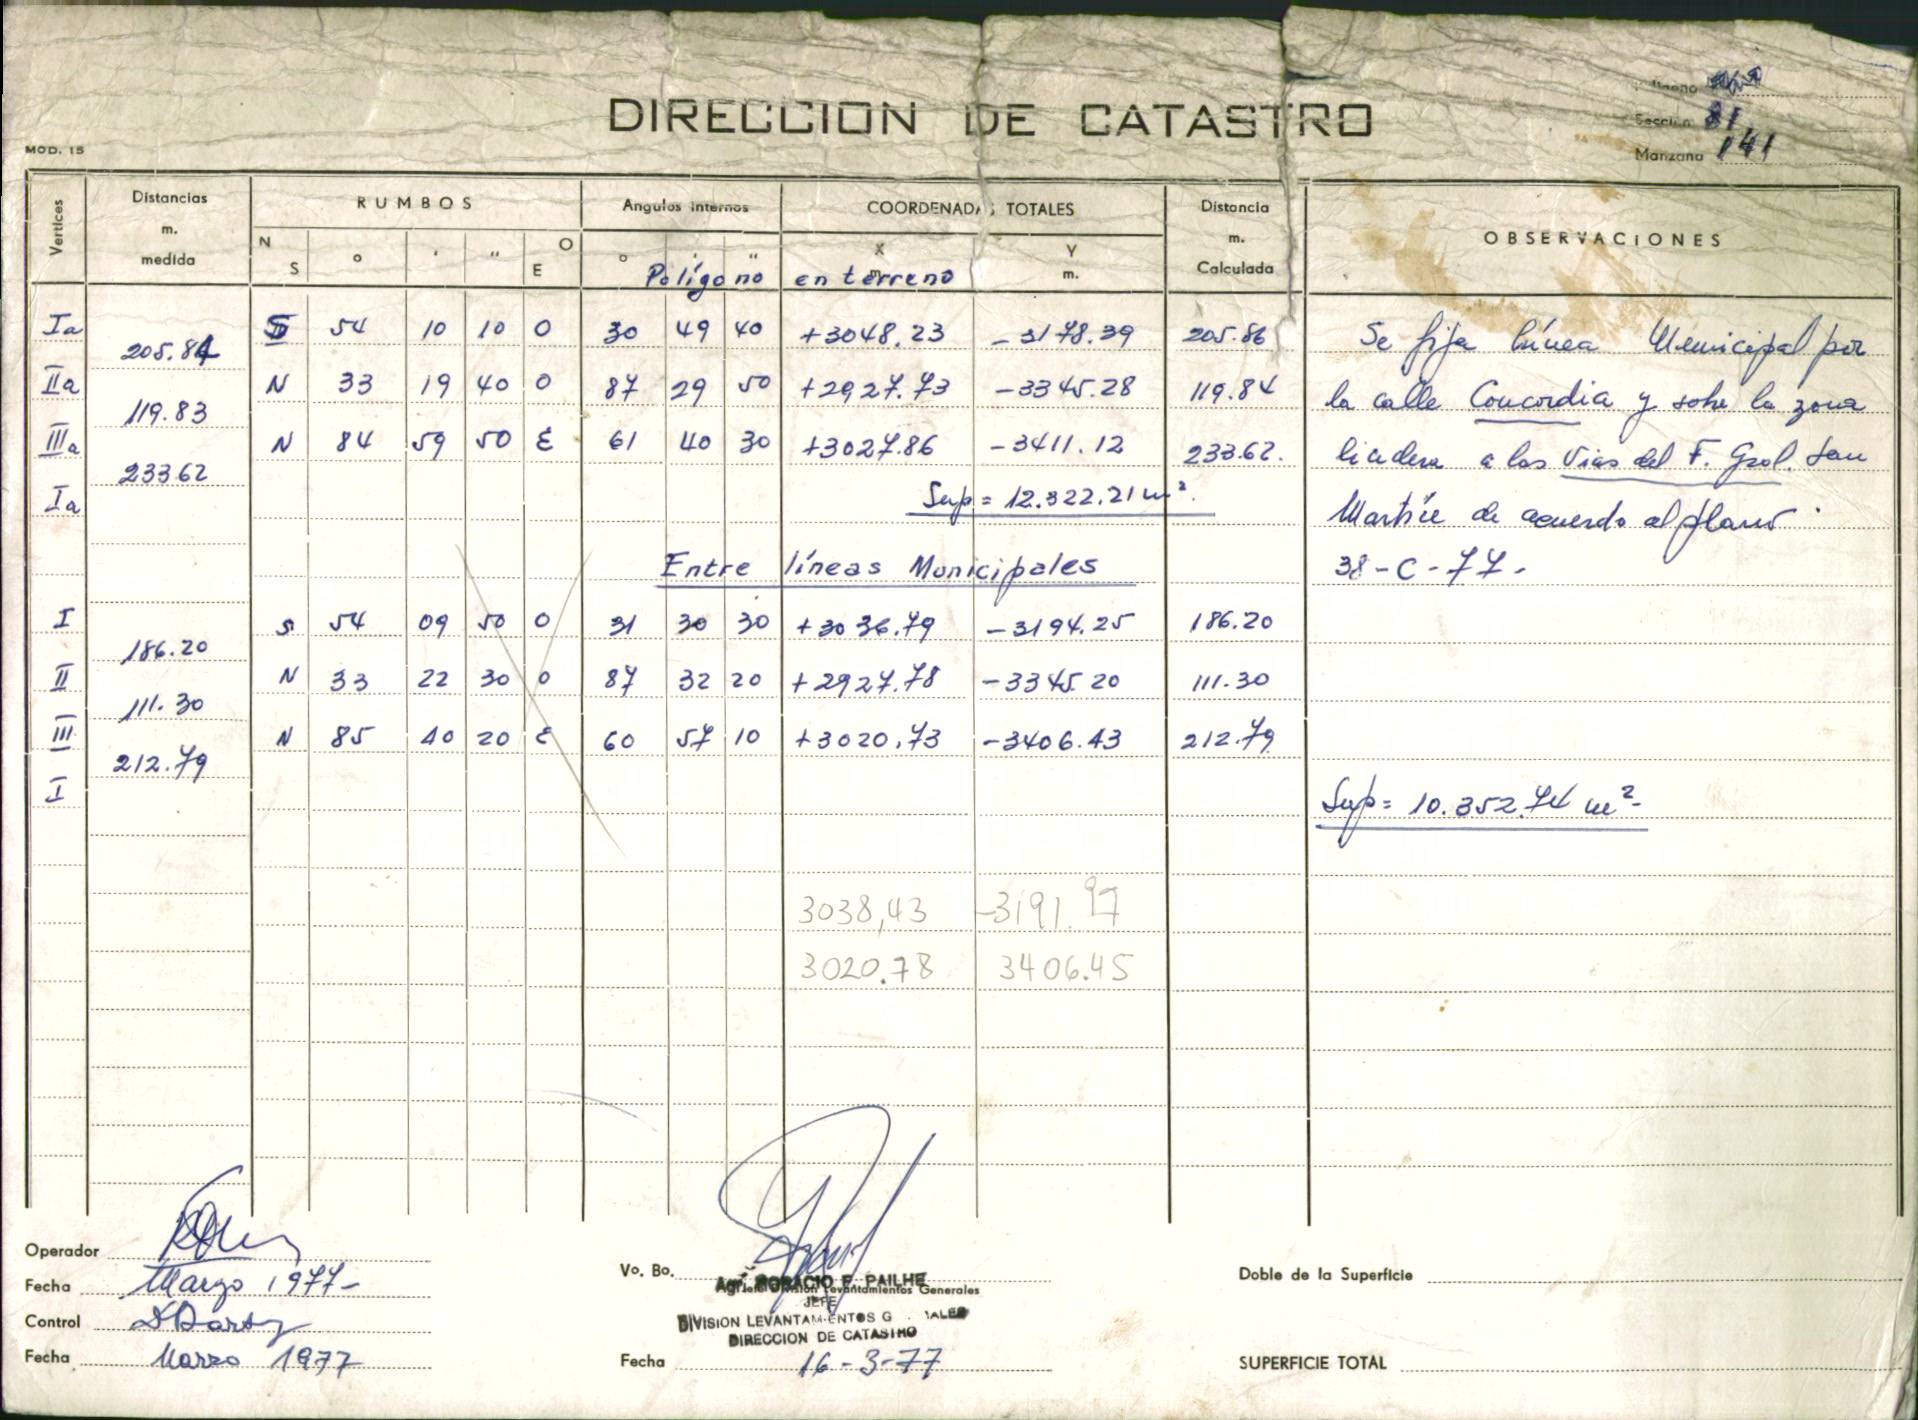 DIRECCION DE CATASTRO
Sección 81
Manzana 141
MOD. 15
Vertices
Distancias m. medida
RUMBOS
Angulos internos
COORDENADAS TOTALES
Distancia m. Calculada
OBSERVACIONES
N S ° ' " O E ° ' " X m. Y m.
Polígono en terreno
Ia S 54 10 10 O 30 49 40 +3048.23 -3178.39 205.86
205.84
IIa N 33 19 40 O 87 29 50 +2927.73 -3345.28 119.84
119.83
IIIa N 84 59 50 E 61 40 30 +3027.86 -3411.12 233.62.
233.62
Ia
Sup = 12.322.21 m².
Se fija Línea Municipal por
la calle Concordia y sobre la zona
lindera a las Vias del F. Gral. San
Martín de acuerdo al plano
38-C-77.
Entre líneas Municipales
I S 54 09 50 O 31 30 30 +3036.79 -3194.25 186.20
186.20
II N 33 22 30 O 87 32 20 +2927.78 -3345.20 111.30
111.30
III N 85 40 20 E 60 57 10 +3020.73 -3406.43 212.79
212.79
I
Sup = 10.352.74 m²-
3038,43 -3191.97
3020.78 3406.45
Operador
Fecha Marzo 1977-
Control
Fecha Marzo 1977
Vo. Bo.
Agr. HORACIO F. PAILHE
Jefe División Levantamientos Generales
JEFE
DIVISION LEVANTAMIENTOS GENERALES
DIRECCION DE CATASTRO
Fecha 16-3-77
Doble de la Superficie
SUPERFICIE TOTAL